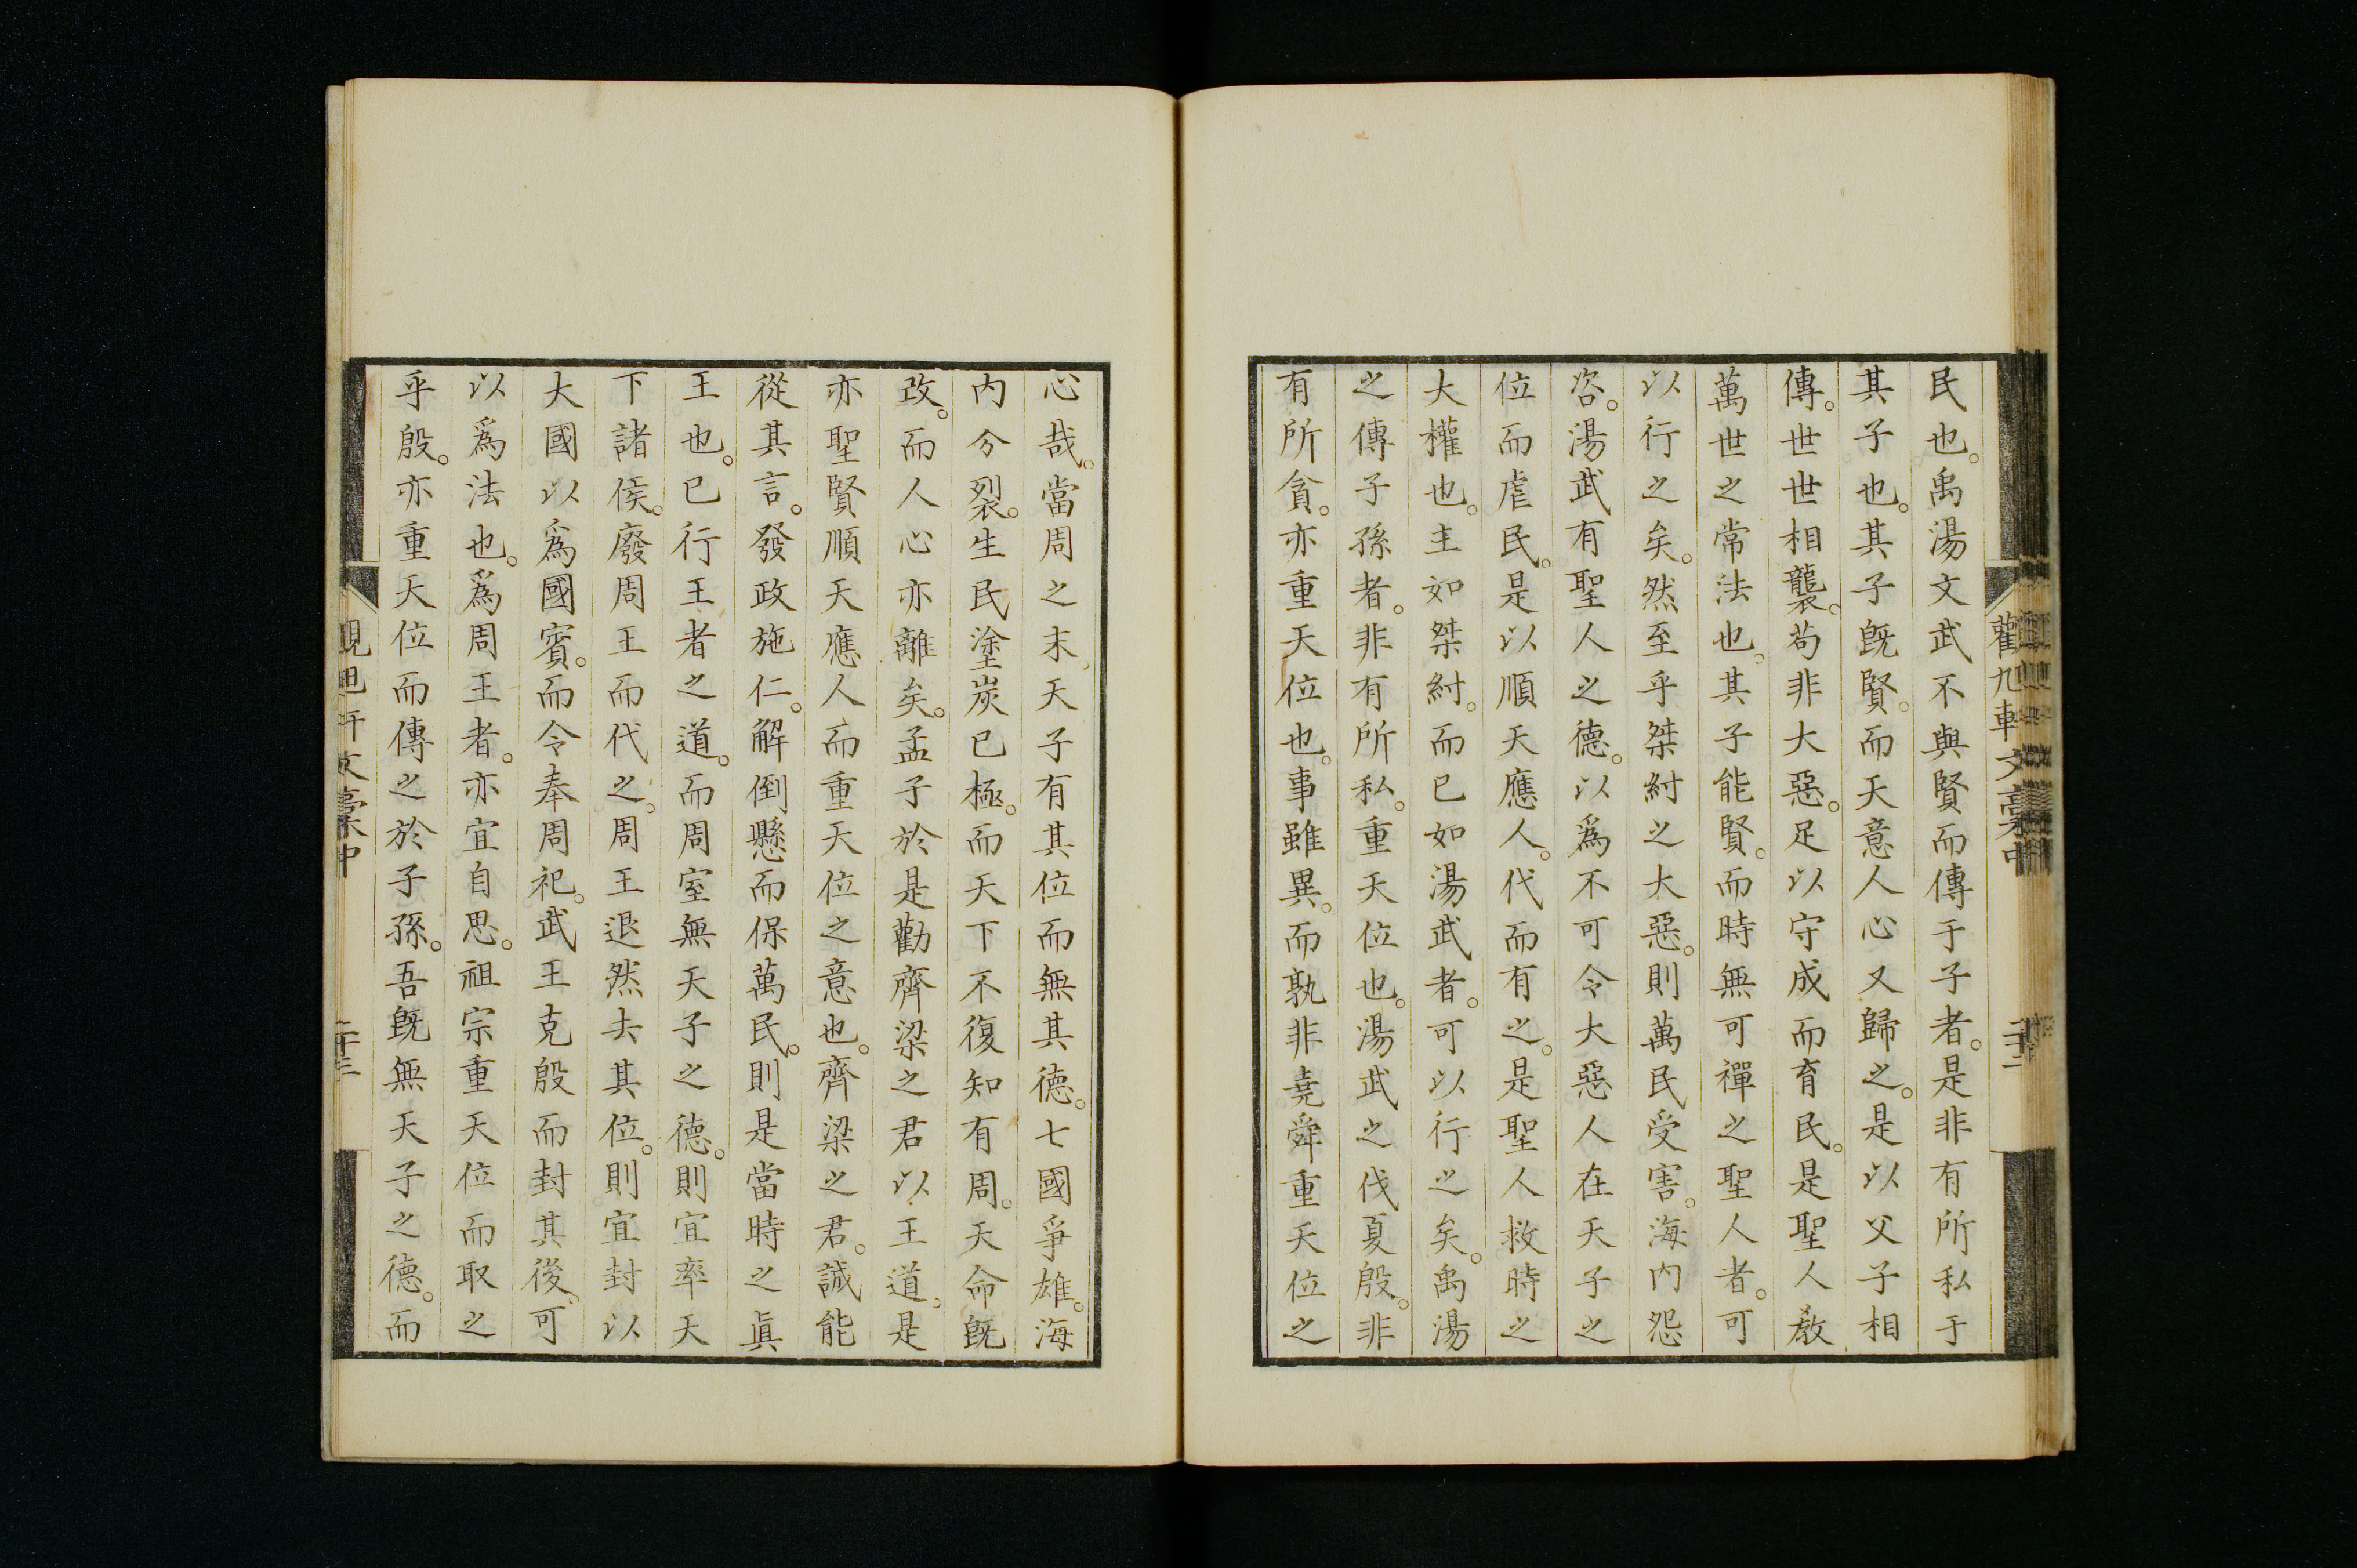 民也。禹湯文武不與賢而傳于子者。是非有所私于
其子也。其子既賢。而天意人心又歸之。是以父子相
傳。世世相襲。苟非大惡。足以守成而育民。是聖人教
萬世之常法也。其子能賢。而時無可禪之聖人者。可
以行之矣。然至乎桀紂之大惡。則萬民受害。海內怨
咨。湯武有聖人之德。以爲不可令大惡人在天子之
位而虐民。是以順天應人。代而有之。是聖人救時之
大權也。主如桀紂。而已如湯武者。可以行之矣。禹湯
之傳子孫者。非有所私。重天位也。湯武之伐夏殷。非
有所貪。亦重天位也。事雖異。而孰非堯舜重天位之
心哉。當周之末、天子有其位而無其德。七國爭雄。海
內分裂。生民塗炭已極。而天下不復知有周。天命既
改。而人心亦離矣。孟子於是勸齊梁之君以王道。是
亦聖賢順天應人而重天位之意也。齊梁之君。誠能
從其言。發政施仁。解倒懸而保萬民。則是當時之眞
王也。已行王者之道。而周室無天子之德。則宜率天
下諸侯。廢周王而代之。周王退然去其位。則宜封以
大國以爲國賓。而令奉周祀。武王克殷而封其後。可
以爲法也。爲周王者。亦宜自思。祖宗重天位而取之
乎殷。亦重天位而傳之於子孫。吾既無天子之德。而
文稾中
二十二
文稾中
二十三